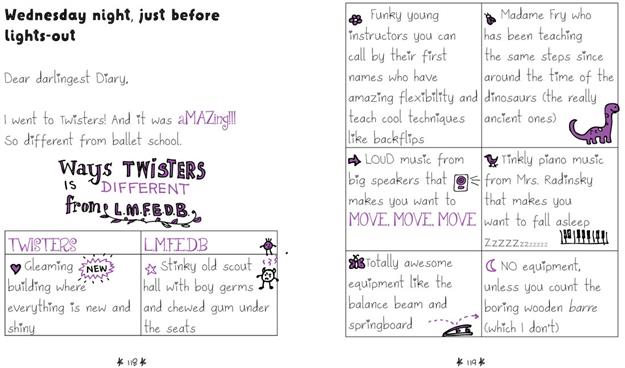 Wednesday night, just before
lights-out
Dear darlingest Diary,
I went to Twisters! And it was aMAZing!!!
So different from ballet school.
Ways TWISTERS
IS DIFFERENT
from L.M.F.E.D.B.
TWISTERS
L.M.F.E.D.B
Gleaming
building where
everything is new and
shiny
NEW
Stinky old scout
hall with boy germs
and chewed gum under
the seats
118
Funky young
instructors you can
call by their first
names who have
amazing flexibility and
teach cool techniques
like backflips
Madame Fry who
has been teaching
the same steps since
around the time of the
dinosaurs (the really
ancient ones)
LOUD music from
big speakers that
makes you want to
MOVE, MOVE, MOVE
Tinkly piano music
from Mrs. Radinsky
that makes you
want to fall asleep
ZZZZZZzzzzzzz
Totally awesome
equipment like the
balance beam and
springboard
NO equipment,
unless you count the
boring wooden barre
(which I don't)
119